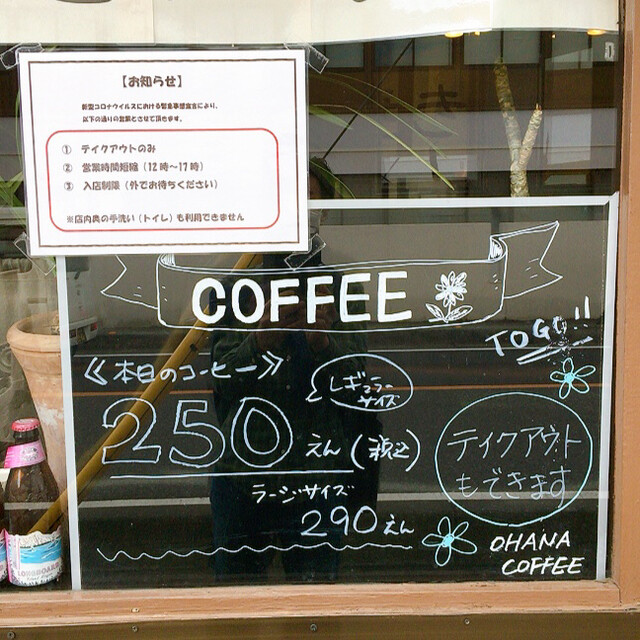 【お知らせ】
新型コロナウイルスにおける緊急事態宣言により、
以下の通りの営業とさせて頂きます。
① テイクアウトのみ
② 営業時間短縮（12時～17時）
③ 入店制限（外でお待ちください）
※店内奥の手洗い（トイレ）も利用できません
COFFEE
TOGO!!
≪本日のコーヒー≫
レギュラー
サイズ
250えん(税込)
ラージサイズ
290えん
テイクアウト
もできます
OHANA
COFFEE
LONGBOARD